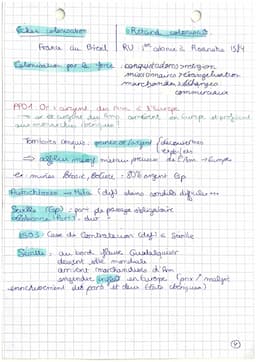 Echec colonisation Retard colonisation
France au Brésil RU : 1ère colonie à Roanoke 1584
Colonisation par la force : conquistadors → religion
missionnaires → évangélisation
marchandises → échanges
commerciaux
PPO1 : Or et argent, des Am. à l'Europe
→ or et argent des Emp.
en Europe et profitent
aux monarchies ibériques
Tombeaux incas : grande or/argent / découvertes
→ afflux métaux précieux de l'Am → Europe
Ex : mines Potosi, Bolivie : 80% argent Esp
Autochtones → Mita (déf) dans condits difficiles...
Séville (Esp) : port de passage obligatoire
(Port) : dur
1503 : Casa de Contratacion (déf) à Séville
Séville : au bord fleuve Guadalquivir
devient ville mondiale
arrivent marchandises d'Am
engendre en Europe (prix / malgré
enrichissement des ports et deux Etats ibériques)